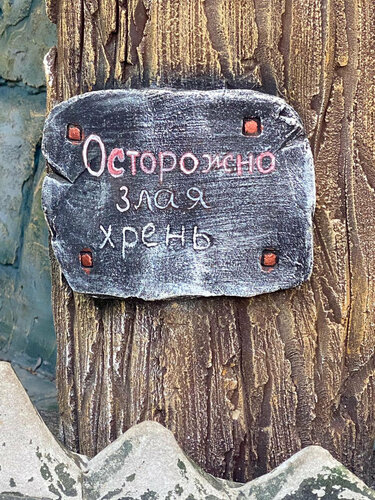 Осторожно
злая
хрень